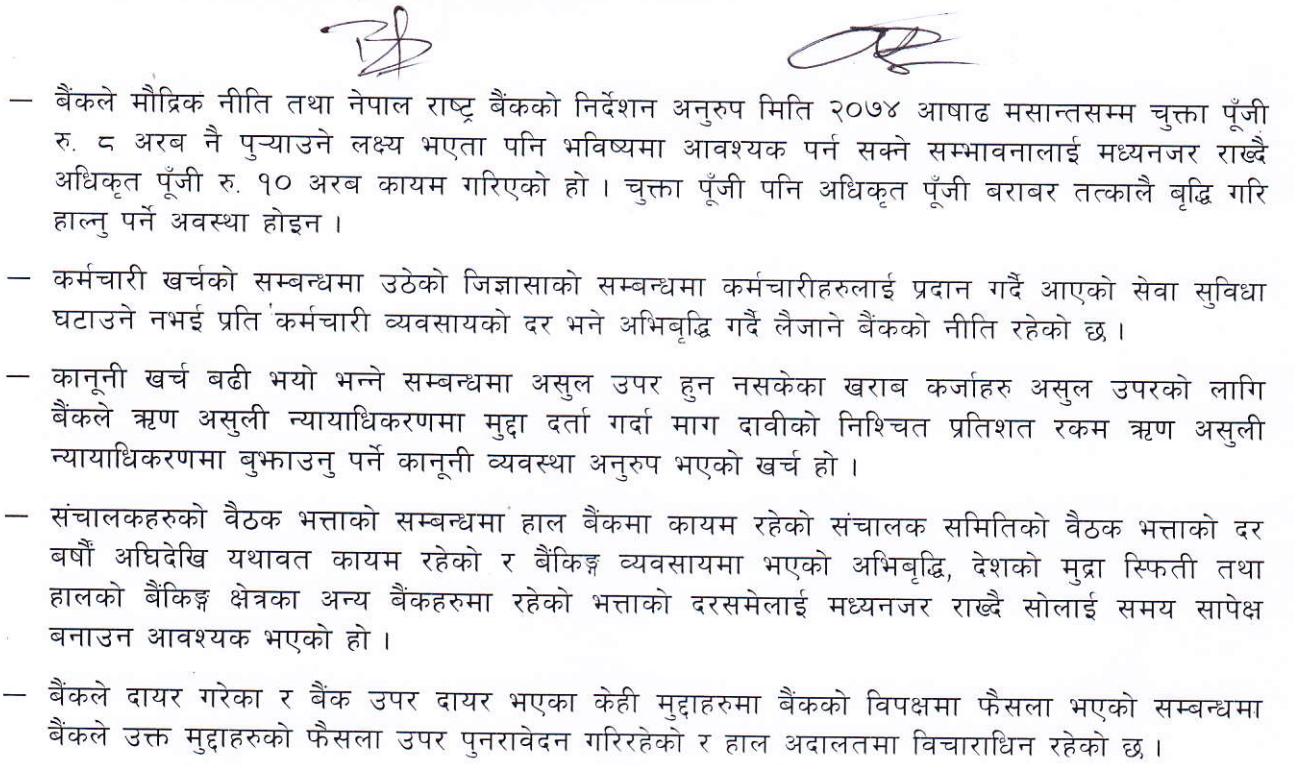 — बैंकले मौद्रिक नीति तथा नेपाल राष्ट्र बैंकको निर्देशन अनुरुप मिति २०७४ आषाढ मसान्तसम्म चुक्ता पूँजी
रु. ८ अरब नै पुऱ्याउने लक्ष्य भएता पनि भविष्यमा आवश्यक पर्न सक्ने सम्भावनालाई मध्यनजर राख्दै
अधिकृत पूँजी रु. १० अरब कायम गरिएको हो । चुक्ता पूँजी पनि अधिकृत पूँजी बराबर तत्कालै बृद्धि गरि
हाल्नु पर्ने अवस्था होइन ।
— कर्मचारी खर्चको सम्बन्धमा उठेको जिज्ञासाको सम्बन्धमा कर्मचारीहरुलाई प्रदान गर्दै आएको सेवा सुविधा
घटाउने नभई प्रति कर्मचारी व्यवसायको दर भने अभिबृद्धि गर्दै लैजाने बैंकको नीति रहेको छ ।
— कानूनी खर्च बढी भयो भन्ने सम्बन्धमा असुल उपर हुन नसकेका खराब कर्जाहरु असुल उपरको लागि
बैंकले ऋण असुली न्यायाधिकरणमा मुद्दा दर्ता गर्दा माग दावीको निश्चित प्रतिशत रकम ऋण असुली
न्यायाधिकरणमा बुझाउनु पर्ने कानूनी व्यवस्था अनुरुप भएको खर्च हो ।
— संचालकहरुको वैठक भत्ताको सम्बन्धमा हाल बैंकमा कायम रहेको संचालक समितिको वैठक भत्ताको दर
बर्षौं अघिदेखि यथावत कायम रहेको र बैंकिङ्ग व्यवसायमा भएको अभिबृद्धि, देशको मुद्रा स्फिती तथा
हालको बैंकिङ्ग क्षेत्रका अन्य बैंकहरुमा रहेको भत्ताको दरसमेलाई मध्यनजर राख्दै सोलाई समय सापेक्ष
बनाउन आवश्यक भएको हो ।
— बैंकले दायर गरेका र बैंक उपर दायर भएका केही मुद्दाहरुमा बैंकको विपक्षमा फैसला भएको सम्बन्धमा
बैंकले उक्त मुद्दाहरुको फैसला उपर पुनरावेदन गरिरहेको र हाल अदालतमा विचाराधिन रहेको छ ।